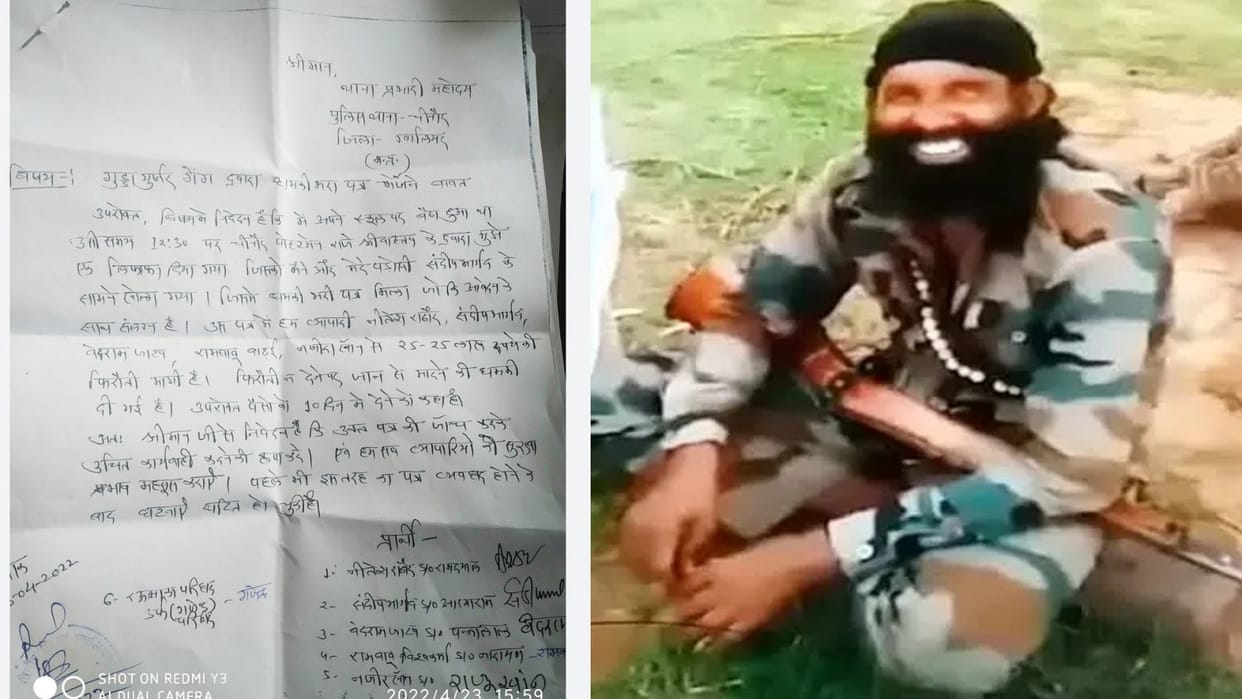 श्रीमान,
थाना प्रभारी महोदय
पुलिस थाना - चीनौर
जिला - ग्वालियर
(म.प्र.)
विषय =: गुड्डा गुर्जर गैंग द्वारा धमकी भरा पत्र भेजने बावत
उपरोक्त, विषय में निवेदन है कि मैं अपने स्थल पर बैठा हुआ था
उसी समय 12:30 पर चीनौर पोस्टमेन राजे श्रीवास्तव के द्वारा मुझे
एक लिफाफा दिया गया जिसको मैंने और मेरे पडोसी संदीप भार्गव के
सामने खोला गया । जिसमें धमकी भरा पत्र मिला जो कि आवेदन के
साथ संलग्न है । उस पत्र में हम व्यापारी नीलेश राठौर, संदीप भार्गव,
वेदराम जाटव, रामबाबू बाढई, नजीर खाँन से 25-25 लाख रूपये की
फिरौती मांगी है। फिरौती न देने पर जान से मारने की धमकी
दी गई है। उपरोक्त पैसों को 10 दिन में देने को कहा है।
अतः श्रीमान जी से निवेदन है कि उक्त पत्र की जाँच करके
उचित कार्यवाही करने की कृपा करें। एवं हम सब व्यापारियों की सुरक्षा
पहले भी इस तरह का पत्र व्यवहार होने के
बाद घटनाएँ घटित हो चुकी है।
प्रार्थी -
1- नीलेश राठौर S/o रामदयाल
2- संदीप भार्गव S/o आत्माराम
3- वेदराम जाटव S/o पन्नालाल
4- रामबाबू विश्वकर्मा S/o नारायण
5- नजीर खाँन S/o
6- परिहार
-04-2022
SHOT ON REDMI Y3
AI DUAL CAMERA
2022/4/23 15:59